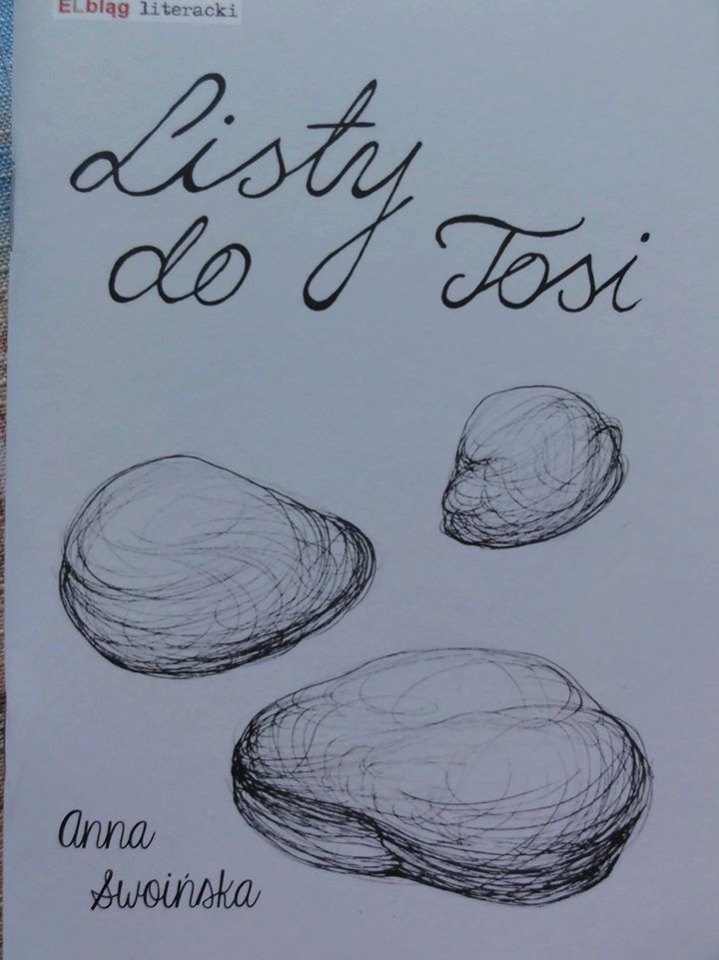 ELbląg literacki
Listy
do Tosi
Anna
Swoińska